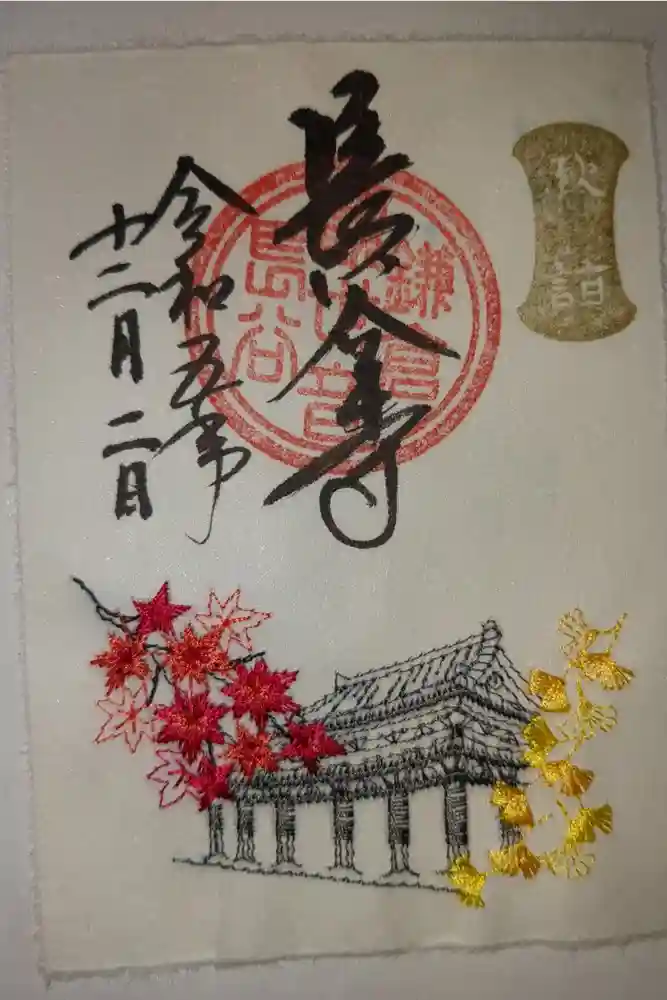 秋詣
長谷寺
鎌倉
世音
長谷
令和五年
十二月二日